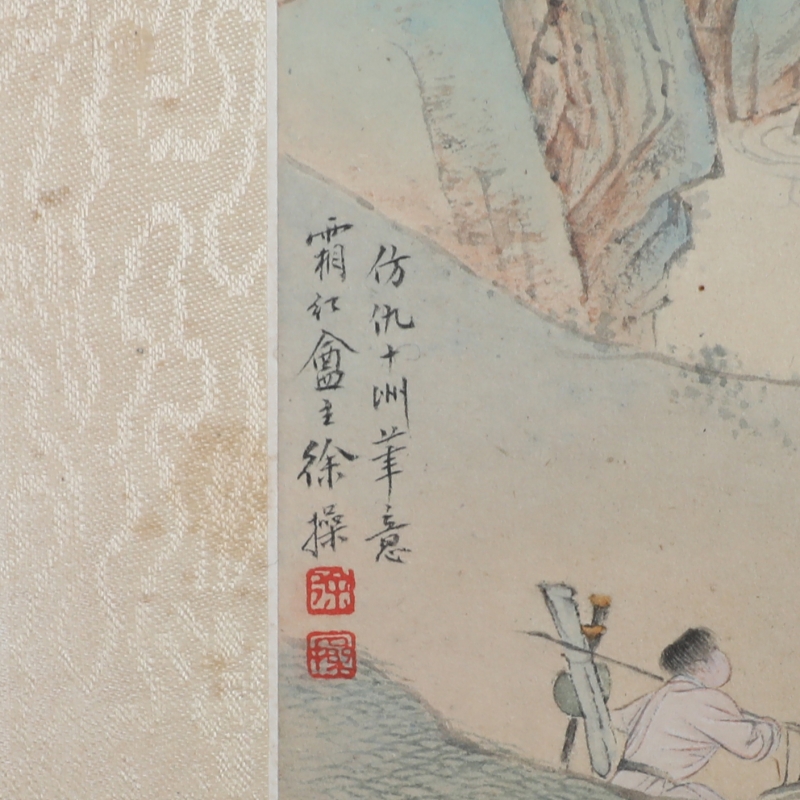 仿仇十洲筆意
霜紅盦主徐操
徐
操